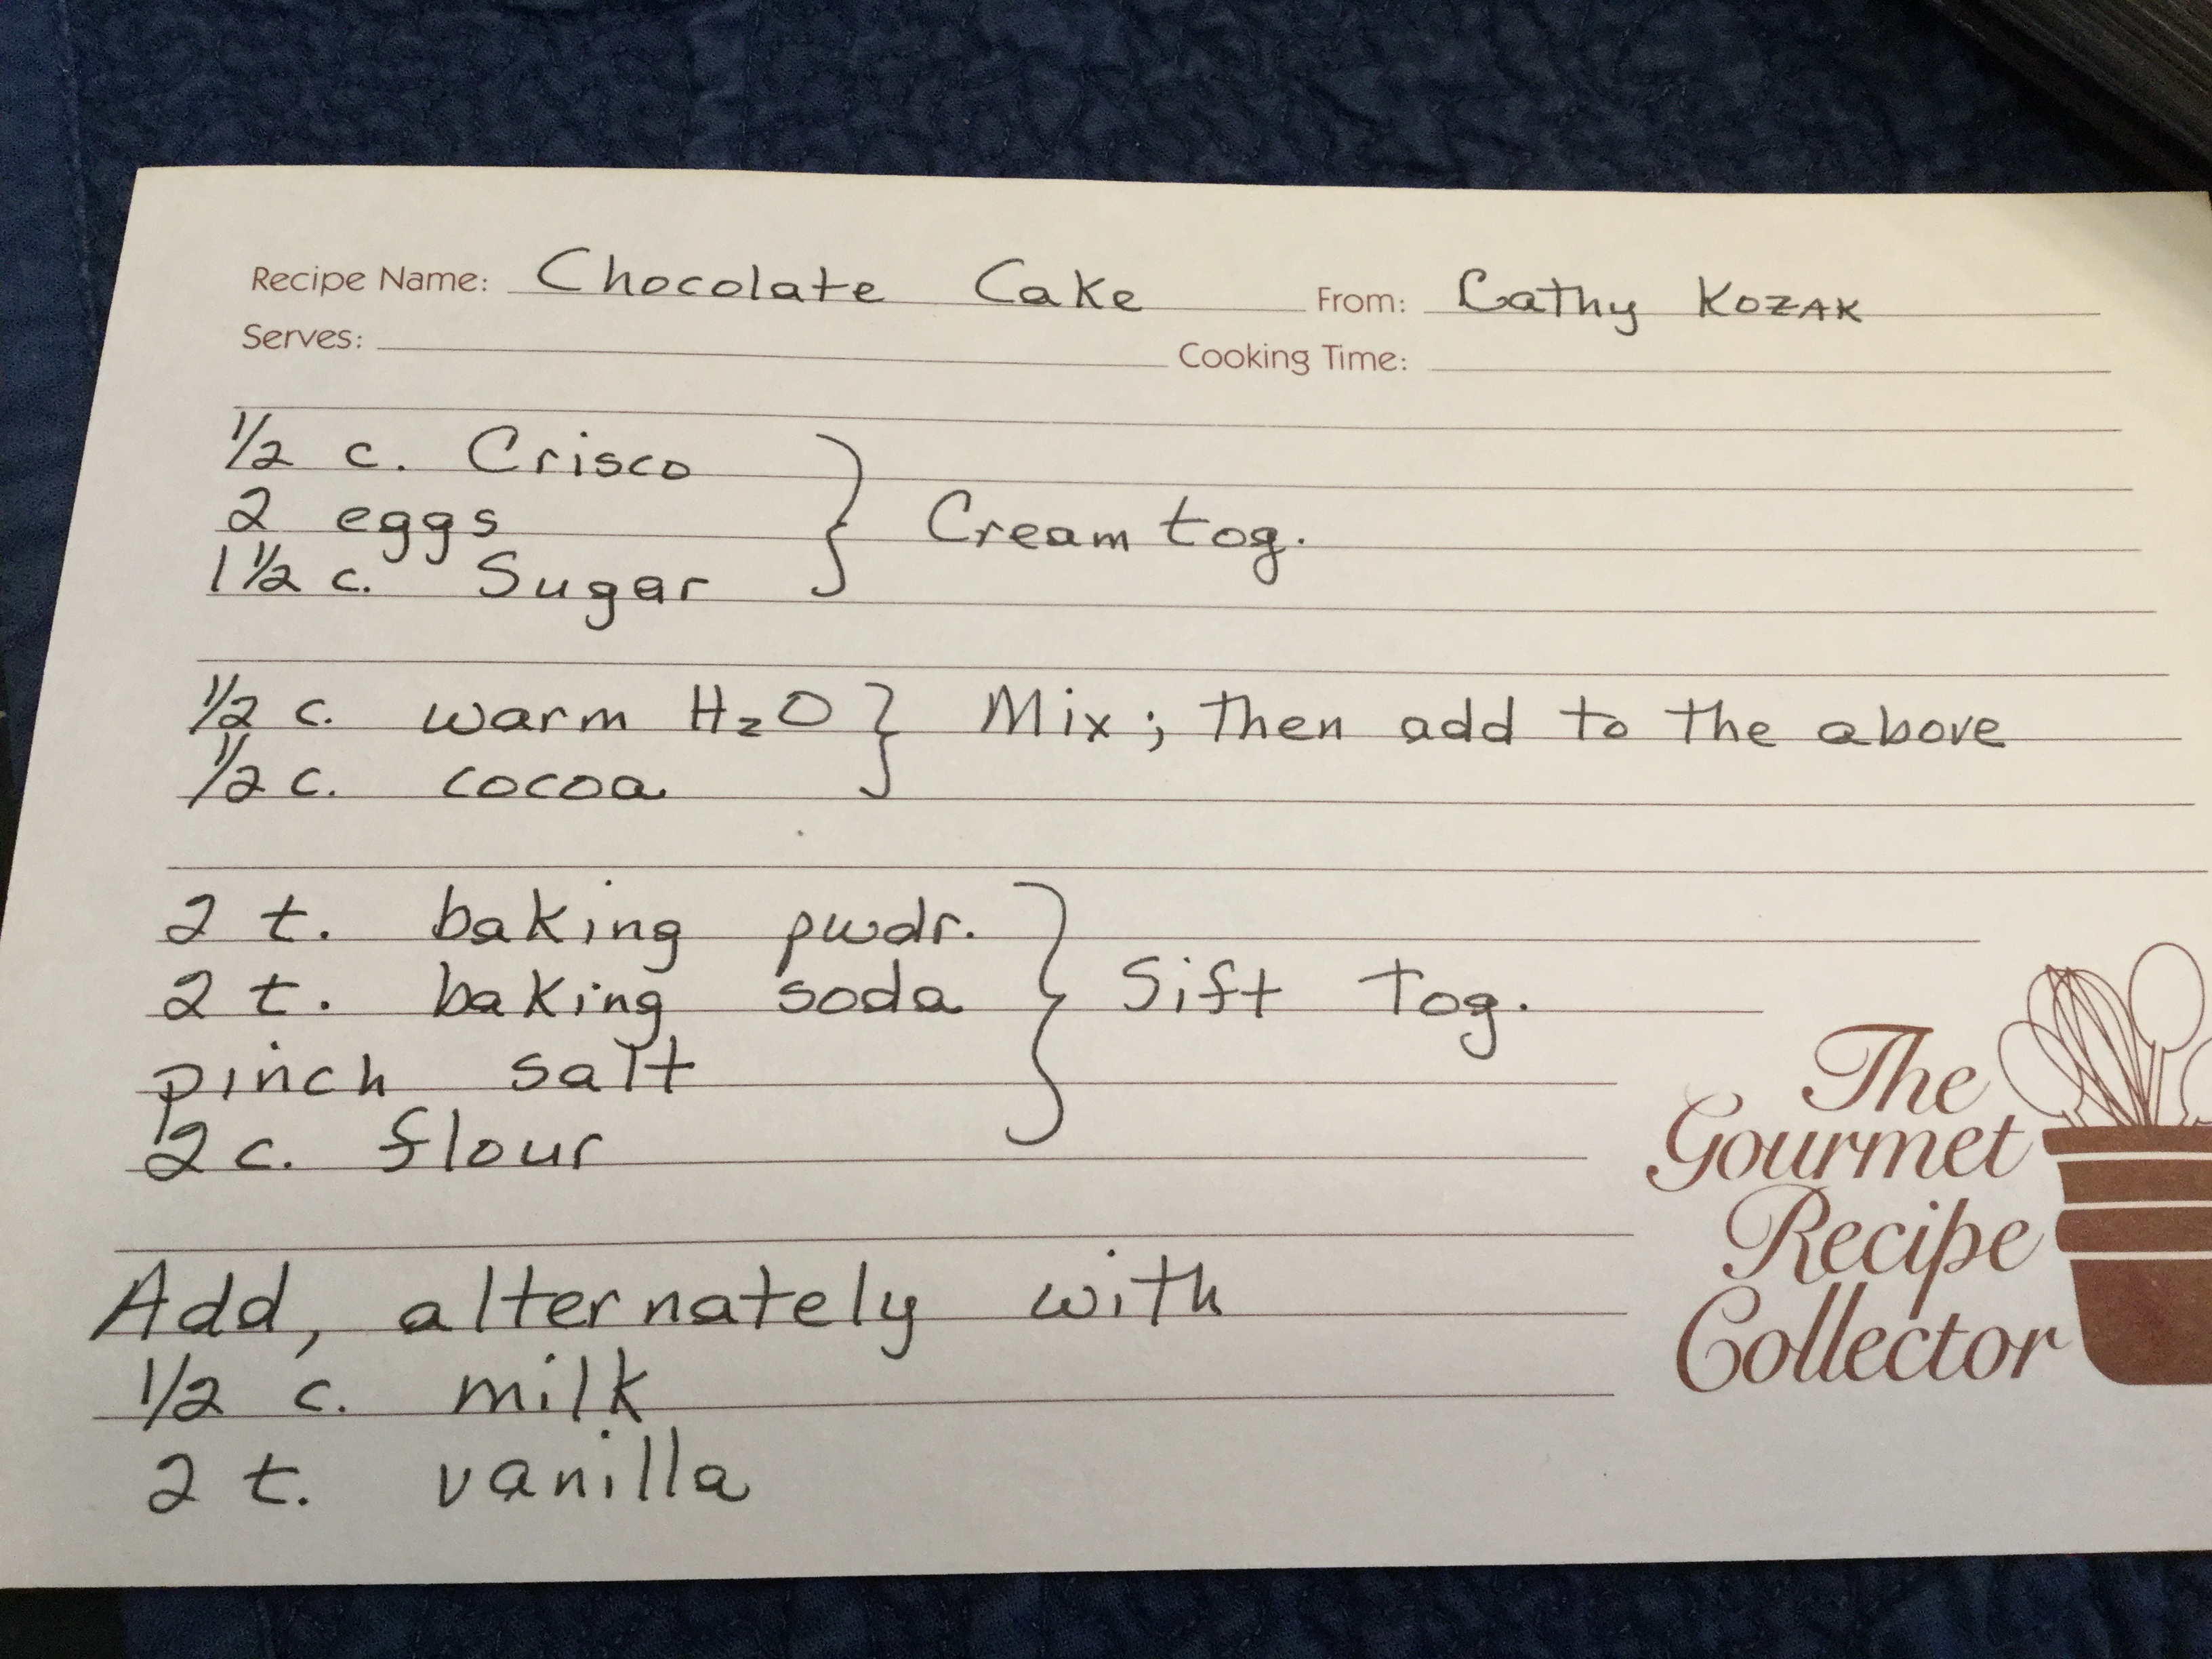 Recipe Name: Chocolate Cake From: Cathy KOZAK
Serves: Cooking Time:
1/2 c. Crisco
2 eggs
1 1/2 c. Sugar
Cream tog.
1/2 c. warm H2O
1/2 c. cocoa
Mix; then add to the above
2 t. baking pwdr.
2 t. baking soda
pinch salt
2 c. flour
Sift Tog.
Add, alternately with
1/2 c. milk
2 t. vanilla
The
Gourmet
Recipe
Collector